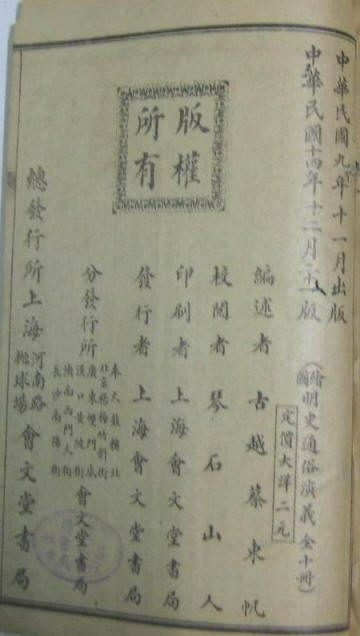 中華民國九年十一月出版
中華民國十四年十二月二十八版
繪圖明史通俗演義（全十冊）
定價大洋二元
編述者 古越蔡東帆
校閱者 琴石山人
印刷者 上海會文堂書局
發行者 上海會文堂書局
分發行所
奉天鼓樓北
北京楊梅竹斜街
廣東雙門底
漢口黃陂街
濟南西門大街
長沙南陽街
會文堂書局
版權所有
總發行所上海河南路拋球場會文堂書局